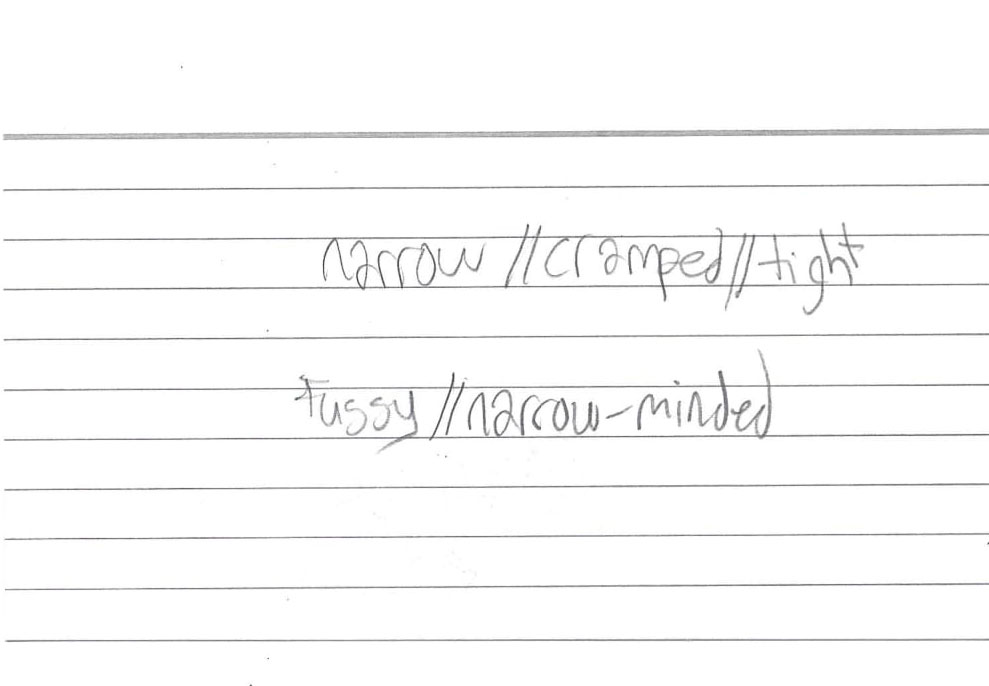 narrow // cramped // tight
fussy // narrow-minded